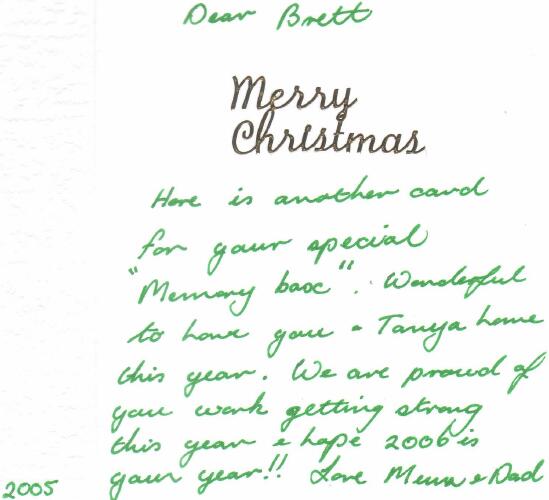 Dear Brett
Merry
Christmas
Here is another card
for your special
"Memory box". Wonderful
to have you & Tanya home
this year. We are proud of
you work getting strong
this year & hope 2006 is
your year!! Love Mum & Dad
2005